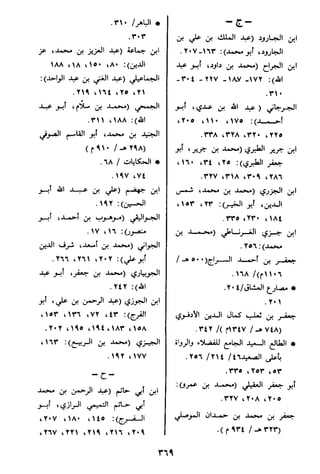 - ج -
ابن الجارود (عبد الملك بن علي بن
الجارود، أبو عمر): ١٦٣-٢٠٧.
ابن الجراح (محمد بن داود، أبو عبد
الله): ١٧٢-١٨٧ - ٢٢٧ - ٣٠٤ -
٣١٠.
الجرجاني (عبد الله بن عدي، أبو
أحمد): ١٧٥، ١١٠، ٢٠٥،
٢٢٥، ٣٢٠، ٣٢٨، ٣٣٨.
ابن جرير الطبري (محمد بن جرير، أبو
جعفر الطبري): ٢٥، ٣٤، ١٦٠،
٢٨٦، ٣٠٩، ٣١٨، ٣٢٧.
ابن الجزري (محمد بن محمد، شمس
الدين، أبو الخير): ٢٣، ١٥٣،
١٨٤، ٢٣٠، ٣٣٥.
ابن
محمد): ٢٥٦.
جعفر بن أحمد السراج (٥٠٠هـ /
١١٠٦م)/ ١٦٨.
* /الثقافة ٢٠٤.
٢٠١.
جعفر بن ثعلب كمال الدين الأدفوي
(٧٤٨هـ / ١٣٤٧م) / ٣٤٢.
* البدر السافر
٢٥٦ / ٢١٤ / ٢٤٦
٥٣، ٢٥٣، ٣٣٥.
أبو جعفر العقيلي (محمد بن عمرو):
٢٠٥، ٢٠٨، ٣٢٧.
جعفر بن محمد بن حمدان الموصلي
(٣٢٣هـ / ٩٣٤م).
* الباهر/ ٣١٠.
٣٠٣.
ابن جماعة (عبد العزيز بن محمد، عز
الدين): ٨٠، ١٥٠، ١٨١، ١٨٨.
الجماعيلي (عبد الغني بن عبد الواحد):
٢١، ٢٥، ١٦٤، ٢١٩.
الجمحي (محمد بن سلام، أبو عبد
الله): ١٨٨، ٣١١.
ابن الجنيد (محمد بن أحمد،
(٢٩٨هـ / ٩١٠م)
* الإمكان / ٦٨.
٧٤، ١٩٧.
ابن جهضم (علي بن عبد الله، أبو
الحسن): ١٩٢.
الجواليقي (موهوب بن أحمد، أبو
منصور): ١٦، ١٧.
الجواني (محمد بن أسعد، شرف الدين
أبو علي): ٢٠٢، ٢٦١، ٢٦٦.
الجوزجاني
الله): ٢٤٢.
ابن الجوزي (عبد الرحمن بن علي، أبو
الفرج): ٤٣، ٧٢، ١٣٦، ١٥١،
١٥٨، ١٨٣، ١٩٤، ١٩٥، ٢٠٢.
الجيزي (محمد بن الربيع): ١٦٣،
١٧٧، ١٩٢.
- ح -
ابن أبي حاتم (عبد الرحمن بن محمد
ابن أبي حاتم التميمي الرازي، أبو
محمد): ١٤٥، ١٨٠، ٢٠٧،
٢٠٩، ٢١٦، ٢١٩، ٢٢١، ٢٦٧،
٣٦٩